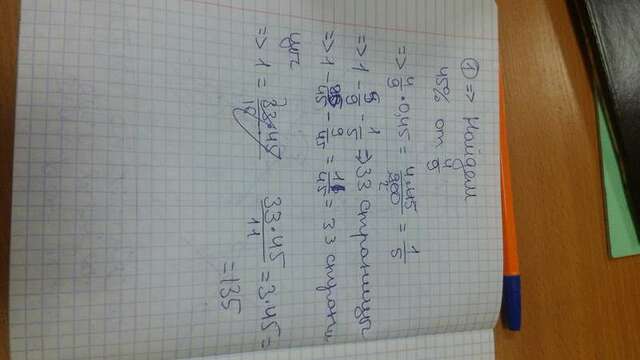 ① => Найдем
45% от 4/9
=> 4/9 · 0,45 = 4·45/900 = 1/5
=> 1 - 5/9 - 1/5 => 33 страницы
=> 1 - 25/45 - 9/45 = 11/45 = 33 страницы
=> 1 = 33·45/11 = 3·45 =
= 135